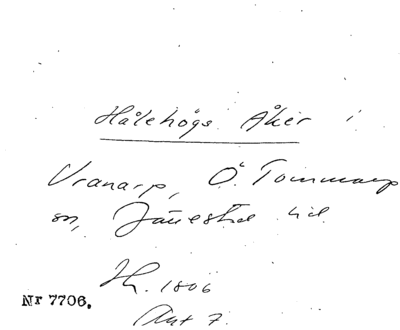 Hålehögs Åker i
Vranarp, Ö. Tommarp
sn, Järrestad hd.
H. 1806
Nr 7706.
Ant 7